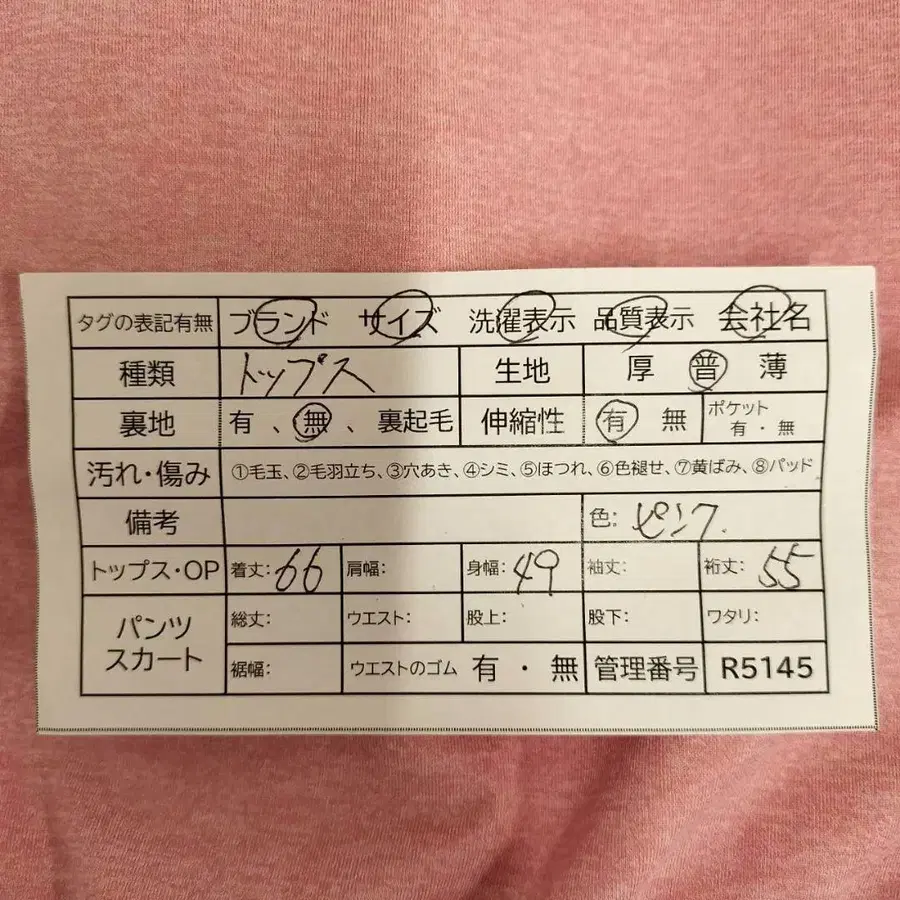 タグの表記有無 ブランド サイズ 洗濯表示 品質表示 会社名
種類 トップス 生地 厚 普 薄
裏地 有 、無 、裏起毛 伸縮性 有 無 ポケット 有・無
汚れ・傷み ①毛玉、②毛羽立ち、③穴あき、④シミ、⑤ほつれ、⑥色褪せ、⑦黄ばみ、⑧パッド
備考 色: ピンク.
トップス・OP 着丈: 66 肩幅: 身幅: 49 袖丈: 裄丈: 55
パンツ スカート 総丈: ウエスト: 股上: 股下: ワタリ:
裾幅: ウエストのゴム 有・無 管理番号 R5145